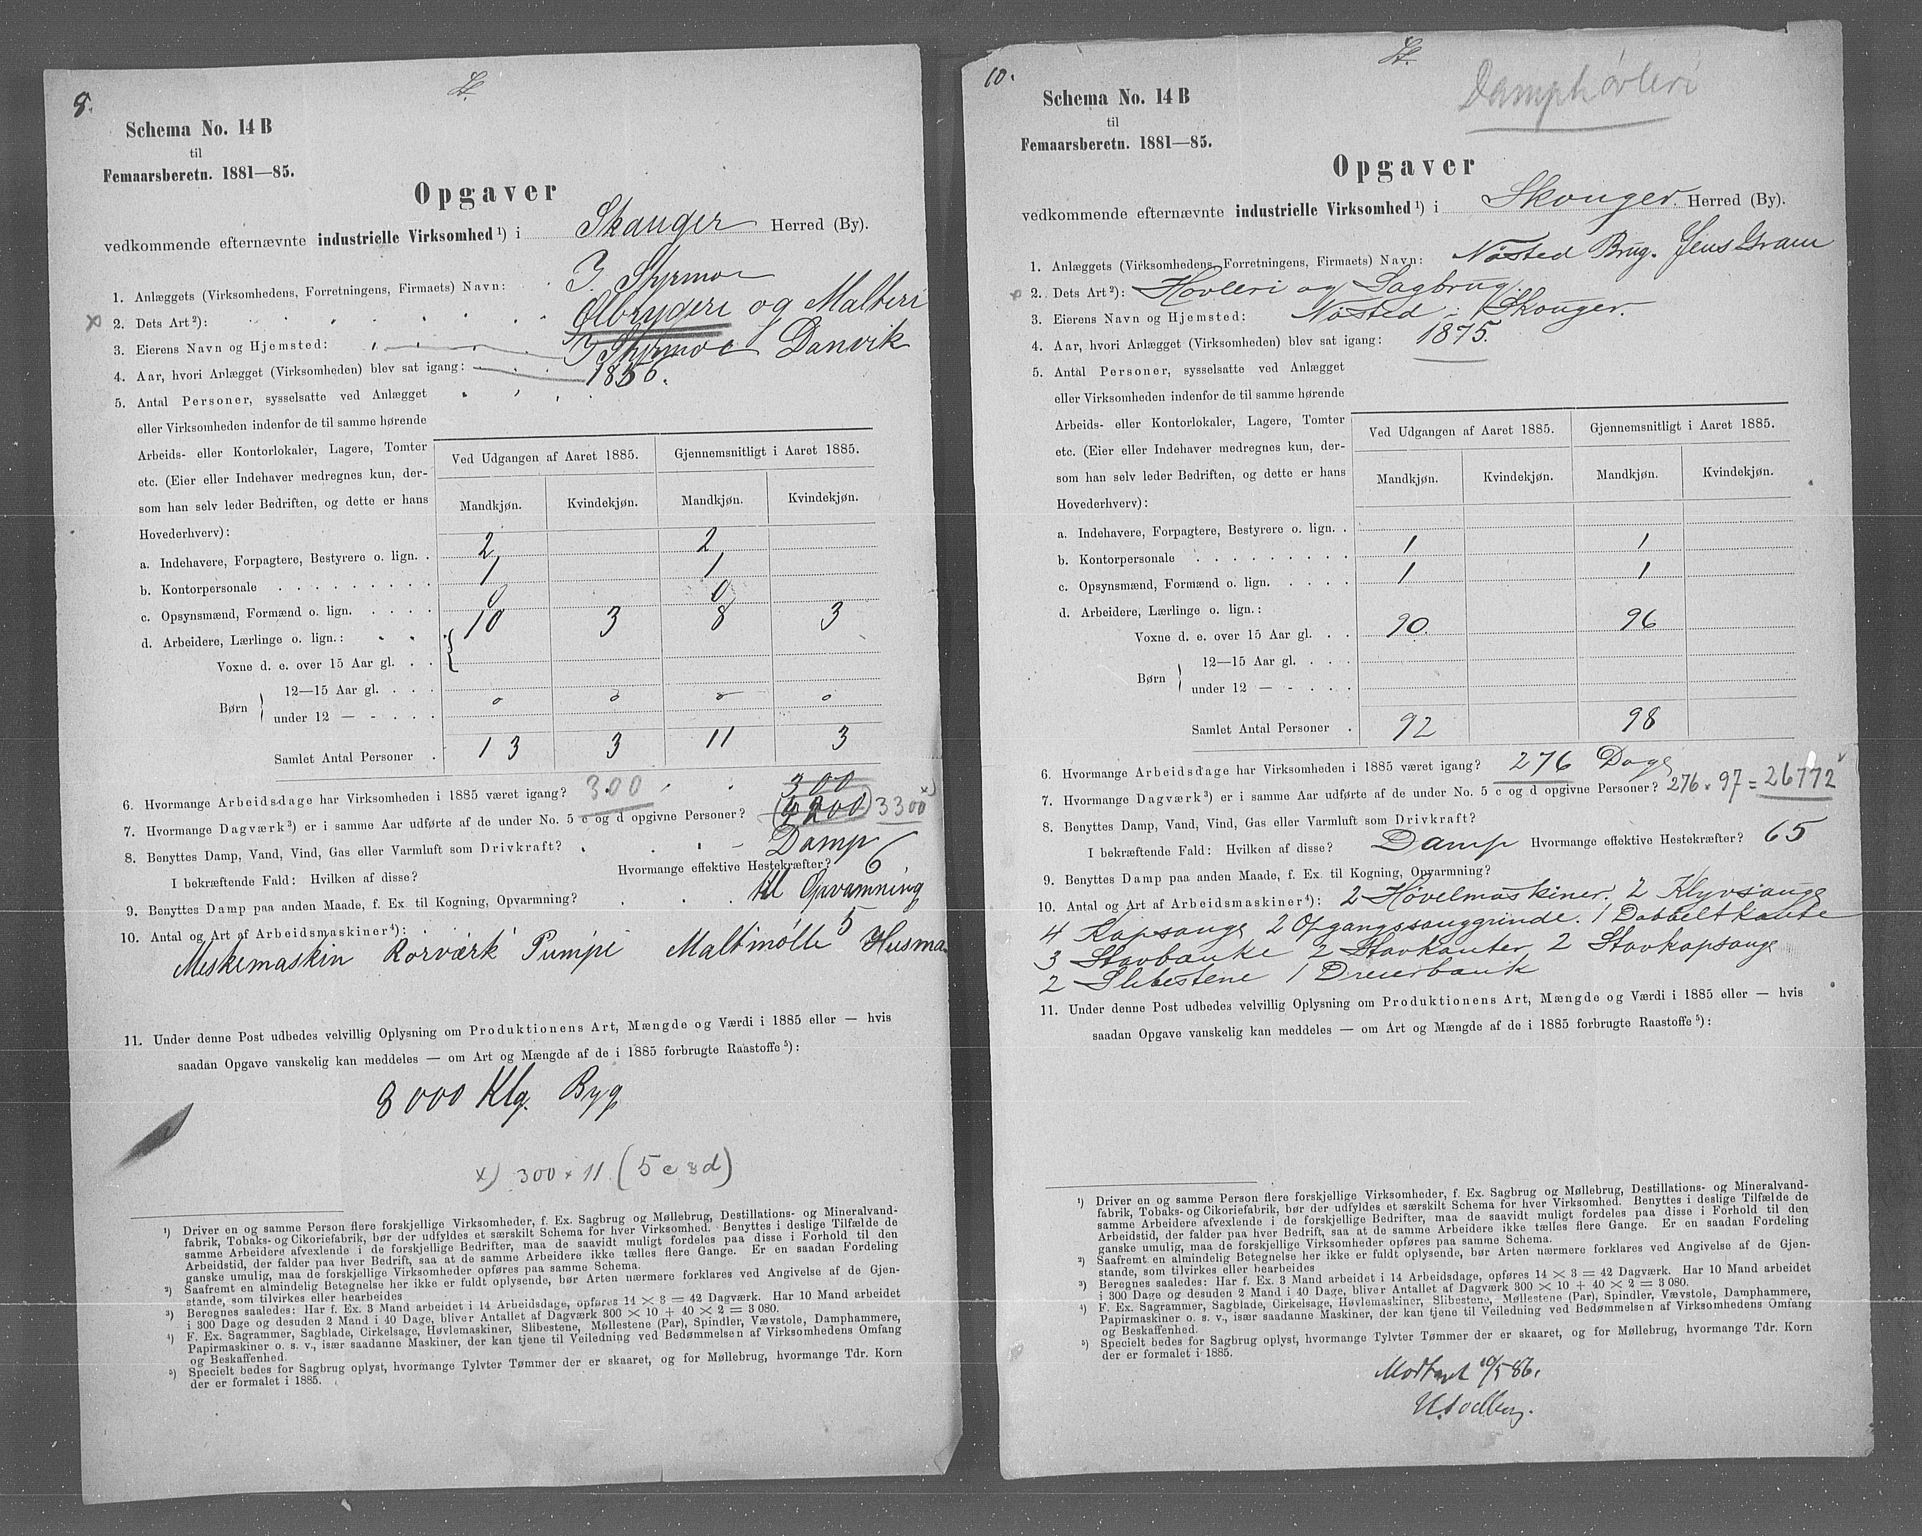 8.
St.
Schema No. 14 B
til
Femaarsberetn. 1881—85.
Opgaver
vedkommende efternævnte industrielle Virksomhed ¹) i Skauger Herred (By).
1. Anlæggets (Virksomhedens, Forretningens, Firmaets) Navn: J. Styrmoe
x 2. Dets Art ²): Ølbryggeri og Malteri
3. Eierens Navn og Hjemsted: J. Styrmoe Danvik
4. Aar, hvori Anlægget (Virksomheden) blev sat igang: 1856.
5. Antal Personer, sysselsatte ved Anlægget
eller Virksomheden indenfor de til samme hørende
Arbeids- eller Kontorlokaler, Lagere, Tomter
etc. (Eier eller Indehaver medregnes kun, der-
som han selv leder Bedriften, og dette er hans
Hovederhverv):
Ved Udgangen af Aaret 1885. Gjennemsnitligt i Aaret 1885.
Mandkjøn. Kvindekjøn. Mandkjøn. Kvindekjøn.
a. Indehavere, Forpagtere, Bestyrere o. lign. . 2 2
b. Kontorpersonale . . . . . . . 1 1
c. Opsynsmænd, Formænd o. lign. . . . . 0 0
d. Arbeidere, Lærlinge o. lign.: 10 3 8 3
Voxne d. e. over 15 Aar gl. . .
Børn 12—15 Aar gl. . . .
under 12 — - . . . . 0 0 0 0
Samlet Antal Personer . 13 3 11 3
6. Hvormange Arbeidsdage har Virksomheden i 1885 været igang? 300 300
7. Hvormange Dagværk ³) er i samme Aar udførte af de under No. 5 c og d opgivne Personer? 3300 x)
8. Benyttes Damp, Vand, Vind, Gas eller Varmluft som Drivkraft? Damp
I bekræftende Fald: Hvilken af disse? Hvormange effektive Hestekræfter? 6
9. Benyttes Damp paa anden Maade, f. Ex til Kogning, Opvarmning? til Opvarmning
10. Antal og Art af Arbeidsmaskiner ⁴):
Meskemaskin Rorværk Pumpe Maltmølle 5
11. Under denne Post udbedes velvillig Oplysning om Produktionens Art, Mængde og Værdi i 1885 eller — hvis
saadan Opgave vanskelig kan meddeles — om Art og Mængde af de i 1885 forbrugte Raastoffe ⁵):
8000 Klg. Byg
x) 300 × 11 (5 c & d)
¹) Driver en og samme Person flere forskjellige Virksomheder, f. Ex. Sagbrug og Møllebrug, Destillations- og Mineralvand-
fabrik, Tobaks- og Cikoriefabrik, bør der udfyldes et særskilt Schema for hver Virksomhed. Benyttes i deslige Tilfælde de
samme Arbeidere afvexlende i de forskjellige Bedrifter, maa de saavidt muligt fordeles paa disse i Forhold til den
Arbeidstid, der falder paa hver Bedrift, saa at de samme Arbeidere ikke tælles flere Gange. Er en saadan Fordeling
ganske umulig, maa de forskjellige Virksomheder opføres paa samme Schema.
²) Saafremt en almindelig Betegnelse her ikke er fuldt oplysende, bør Arten nærmere forklares ved Angivelse af de Gjen-
stande, som tilvirkes eller bearbeides
³) Beregnes saaledes: Har f. Ex. 3 Mand arbeidet i 14 Arbeidsdage, opføres 14 × 3 = 42 Dagværk. Har 10 Mand arbeidet
i 300 Dage og desuden 2 Mand i 40 Dage, bliver Antallet af Dagværk 300 × 10 + 40 × 2 = 3 080.
⁴) F. Ex. Sagrammer, Sagblade, Cirkelsage, Høvlemaskiner, Slibestene, Møllestene (Par), Spindler, Vævstole, Damphammere,
Papirmaskiner o. s. v., især saadanne Maskiner, der kan tjene til Veiledning ved Bedømmelsen af Virksomhedens Omfang
og Beskaffenhed.
⁵) Specielt bedes for Sagbrug oplyst, hvormange Tylvter Tømmer der er skaaret, og for Møllebrug, hvormange Tdr. Korn
der er formalet i 1885.
10.
St.
Damphøvleri
Schema No. 14 B
til
Femaarsberetn. 1881—85.
Opgaver
vedkommende efternævnte industrielle Virksomhed ¹) i Skouger. Herred (By).
1. Anlæggets (Virksomhedens, Forretningens, Firmaets) Navn: Nøsted Brug. Jens Gram
x 2. Dets Art ²): Høvleri og Sagbrug.
3. Eierens Navn og Hjemsted: Nøsted i Skouger.
4. Aar, hvori Anlægget (Virksomheden) blev sat igang: 1875.
5. Antal Personer, sysselsatte ved Anlægget
eller Virksomheden indenfor de til samme hørende
Arbeids- eller Kontorlokaler, Lagere, Tomter
etc. (Eier eller Indehaver medregnes kun, der-
som han selv leder Bedriften, og dette er hans
Hovederhverv):
Ved Udgangen af Aaret 1885. Gjennemsnitligt i Aaret 1885.
Mandkjøn. Kvindekjøn. Mandkjøn. Kvindekjøn.
a. Indehavere, Forpagtere, Bestyrere o. lign. .
b. Kontorpersonale . . . . . . . 1 1
c. Opsynsmænd, Formænd o. lign. . . . . 1 1
d. Arbeidere, Lærlinge o. lign.:
Voxne d. e. over 15 Aar gl. . . 90. 96
Børn 12—15 Aar gl. . . .
under 12 — - . . . .
Samlet Antal Personer . 92 98
6. Hvormange Arbeidsdage har Virksomheden i 1885 været igang? 276 Dage
7. Hvormange Dagværk ³) er i samme Aar udførte af de under No. 5 c og d opgivne Personer? 276 × 97 = 26772
8. Benyttes Damp, Vand, Vind, Gas eller Varmluft som Drivkraft?
I bekræftende Fald: Hvilken af disse? Damp Hvormange effektive Hestekræfter? 65
9. Benyttes Damp paa anden Maade, f. Ex. til Kogning, Opvarmning?
10. Antal og Art af Arbeidsmaskiner ⁴): 2 Høvelmaskiner. 2 Klyvsauge
4 Kapsauge 2 Opgangssauggrinde. 1 Dobbeltkante
3 Stavbænke 2 Stavkanter 2 Stavkapsauge
2 Slibestene 1 Dreierbænk
11. Under denne Post udbedes velvillig Oplysning om Produktionens Art, Mængde og Værdi i 1885 eller — hvis
saadan Opgave vanskelig kan meddeles — om Art og Mængde af de i 1885 forbrugte Raastoffe ⁵):
¹) Driver en og samme Person flere forskjellige Virksomheder, f. Ex. Sagbrug og Møllebrug, Destillations- og Mineralvand-
fabrik, Tobaks- og Cikoriefabrik, bør der udfyldes et særskilt Schema for hver Virksomhed. Benyttes i deslige Tilfælde de
samme Arbeidere afvexlende i de forskjellige Bedrifter, maa de saavidt muligt fordeles paa disse i Forhold til den
Arbeidstid, der falder paa hver Bedrift, saa at de samme Arbeidere ikke tælles flere Gange. Er en saadan Fordeling
ganske umulig, maa de forskjellige Virksomheder opføres paa samme Schema.
²) Saafremt en almindelig Betegnelse her ikke er fuldt oplysende, bør Arten nærmere forklares ved Angivelse af de Gjen-
stande, som tilvirkes eller bearbeides
³) Beregnes saaledes: Har f. Ex. 3 Mand arbeidet i 14 Arbeidsdage, opføres 14 × 3 = 42 Dagværk. Har 10 Mand arbeidet
i 300 Dage og desuden 2 Mand i 40 Dage, bliver Antallet af Dagværk 300 × 10 + 40 × 2 = 3 080.
⁴) F. Ex. Sagrammer, Sagblade, Cirkelsage, Høvlemaskiner, Slibestene, Møllestene (Par), Spindler, Vævstole, Damphammere,
Papirmaskiner o. s. v., især saadanne Maskiner, der kan tjene til Veiledning ved Bedømmelsen af Virksomhedens Omfang
og Beskaffenhed.
⁵) Specielt bedes for Sagbrug oplyst, hvormange Tylvter Tømmer der er skaaret, og for Møllebrug, hvormange Tdr. Korn
der er formalet i 1885.
Modtaget 10/5 86.